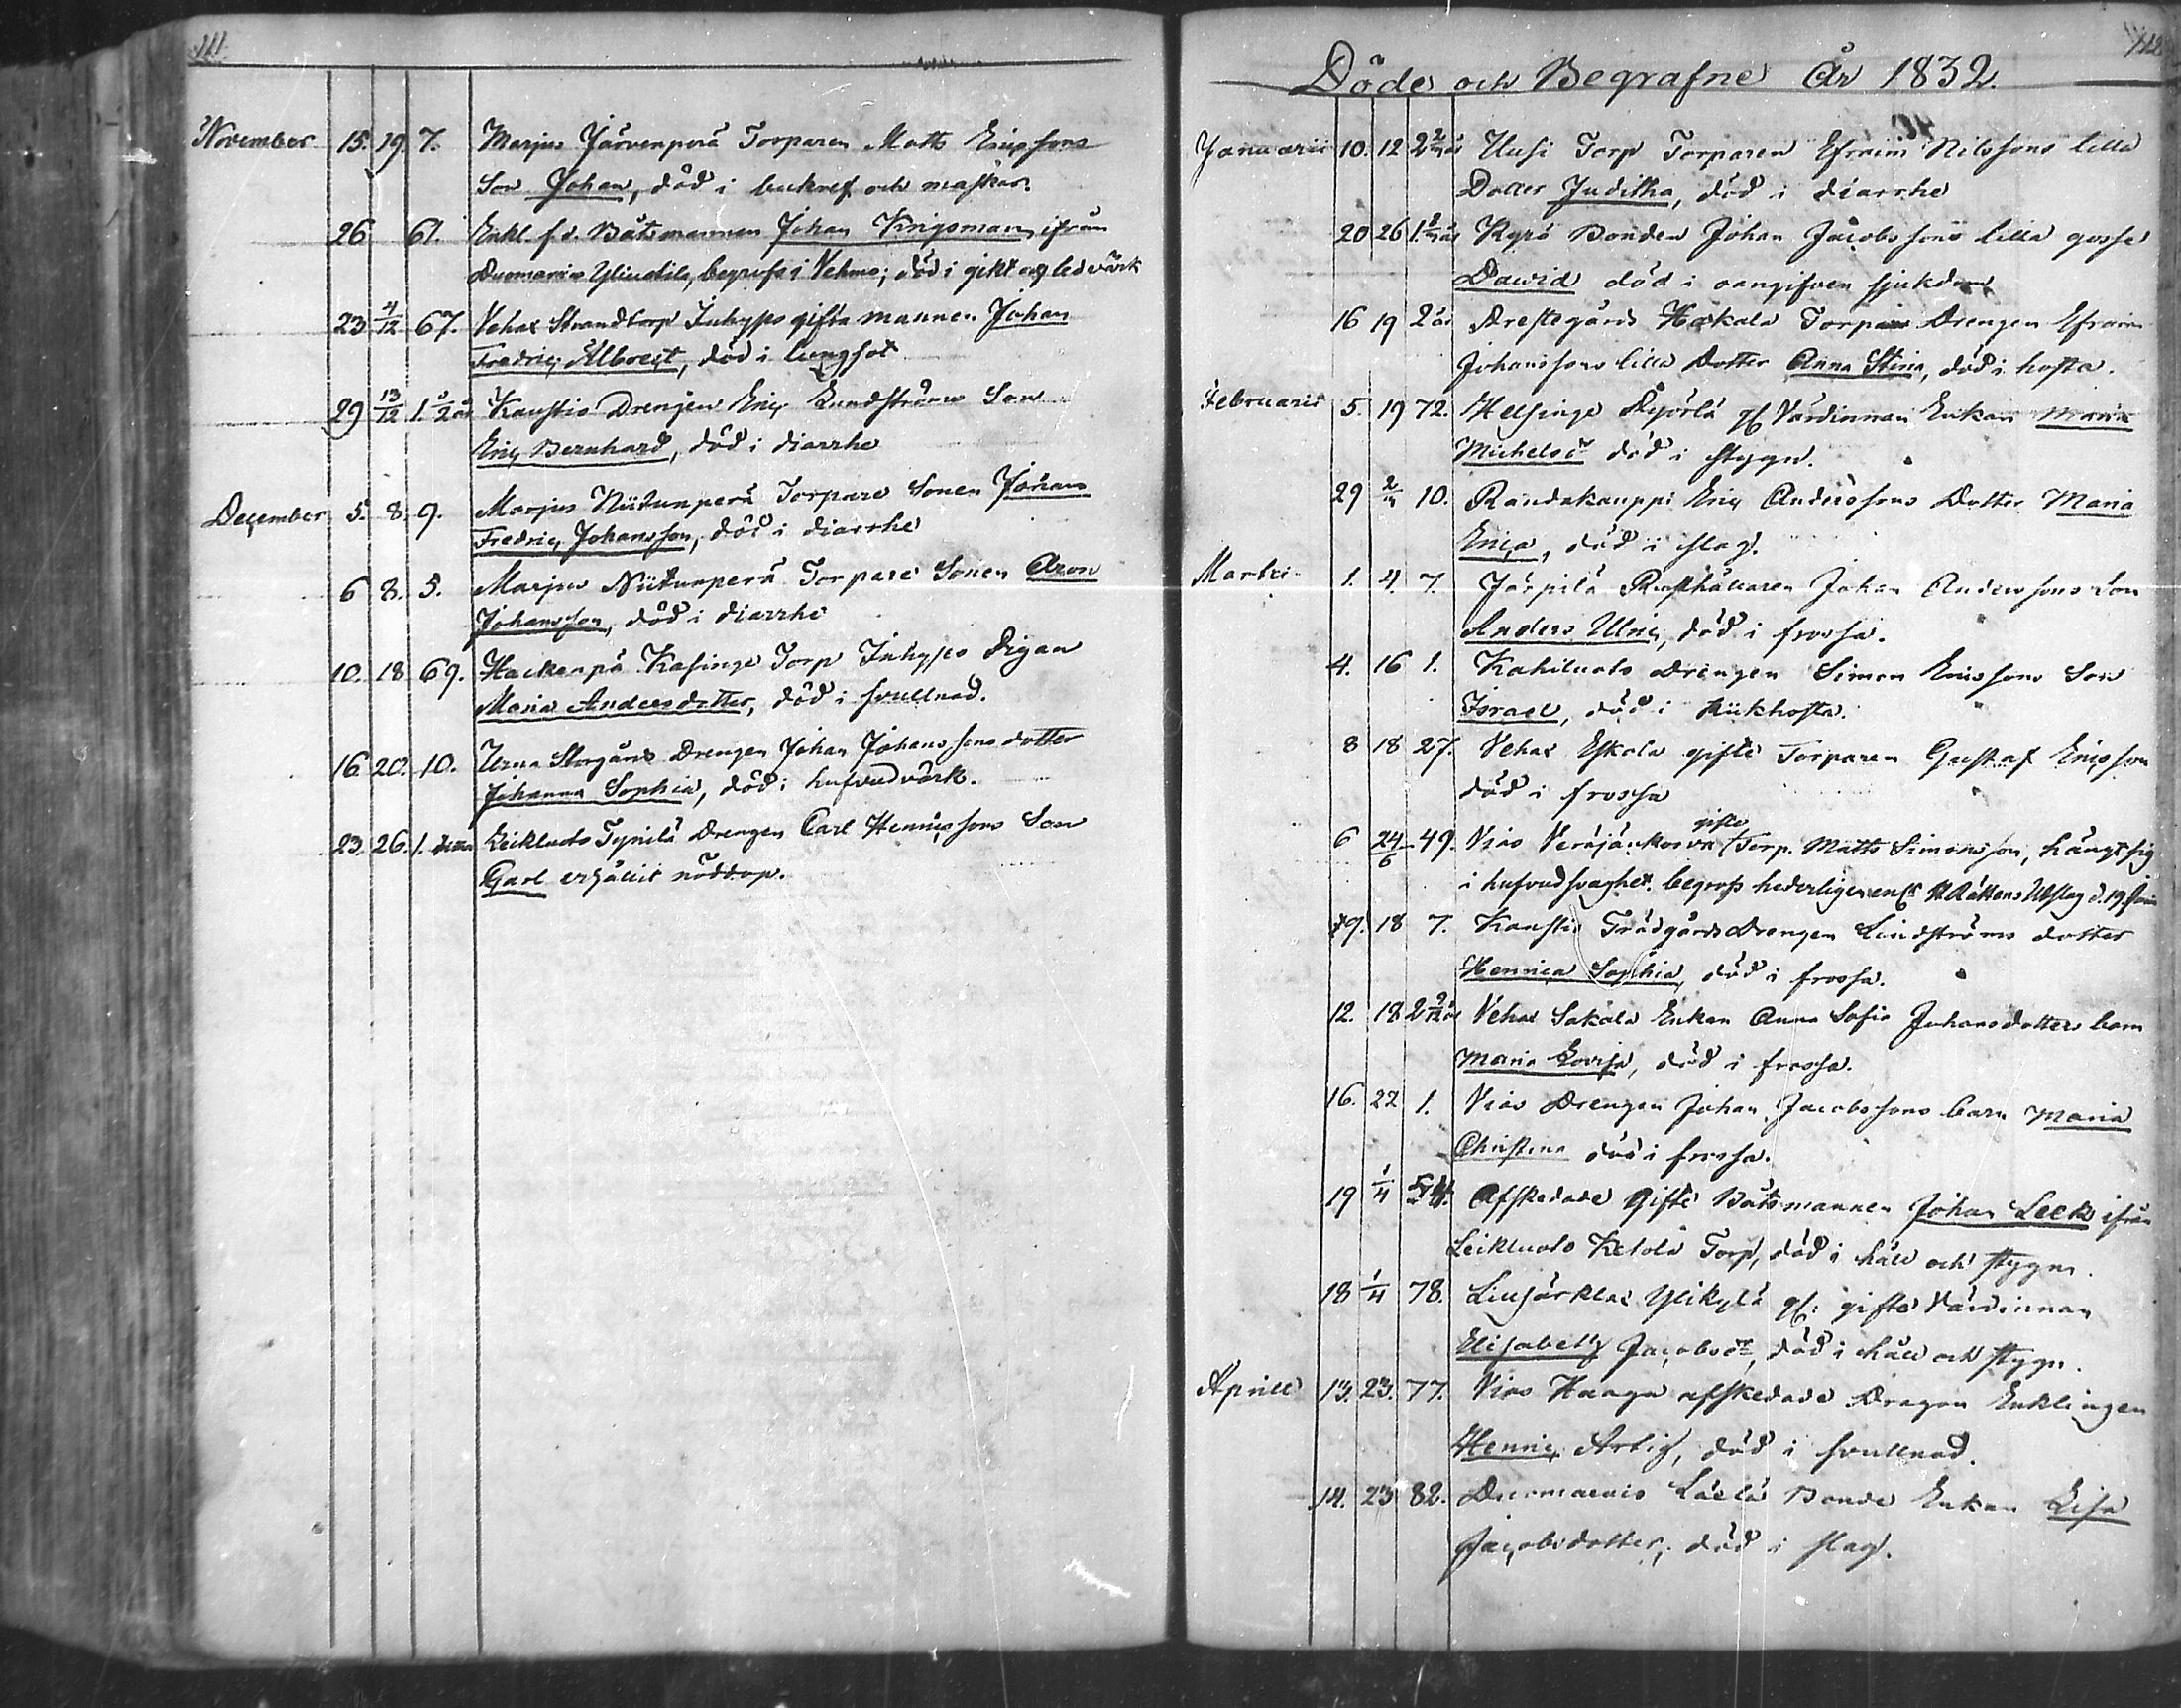 111.
November 15. 19. 7. Marjus Järvenperä Torparen Matts Ericssons
Son Johan, död i bukref och maskar.
26 61. Enkl. f.d. Båtsmannen Johan Krigsman ifrån
begrafs i Vehmo; död i gikt og ledvärk
23 4/12 67. Vehax Strandtorp Inhyses gifta mannen Johan
Fredric Albrect, död i lungsot
29 13/12 1. 5/12 år Kaustio Drengen Eric Lundströms Son
Eric Bernhard, död i diarrhe
December 5. 8. 9. Marjus Niitunperä Torpare Sonen Johan
Fredric Johansson, död i diarrhe
6 8. 5. Marjus Niitunperä Torpare Sonen Aron
Johansson, död i diarrhe
10. 18 69. Hackenpä Kasinge Torp Inhyses Pigan
Maria Andersdotter, död i svullnad.
16. 20. 10. Storgårds Drengen Johan Johanssons dotter
Johanna Sophia, död i hufvudvärk.
23. 26. 1. Leikluoto Drengen Carl Henricssons Son
Carl erhållit nöddop.
112
Döde och Begrafne År 1832.
Januarii 10. 12 2 år Uusi Torp Torparen Efraim Nilssons lilla
Dotter Juditha, död i diarrhe
20 26 1 år Kyrö Bonden Johan Jacobssons lilla gosse
Dawid död i oangifven sjukdom
16 19 2 år Prestegårds Hakala Drengen Efraim
Johanssons lilla Dotter Anna Stina, död i hosta.
Februarii 5. 19 72. Helsinge Värdinnan Enkan Maria
Michelsdr död i stygn.
29 10. Randakauppi Eric Anderssons Dotter Maria
Erica, död i slag.
Martii 1. 4. 7. Järpilä Rusthållaren Johan Anderssons Son
Anders Ulric, död i frossa.
4. 16 1. Kahiluoto Drengen Simon Ericssons Son
Israel, död i kikhosta.
8 18 27. Vehax Eskola gifte Torparen Gustaf Ericsson
död i frossa
gifte
6 24/6 49. Vias Torp. Matts Simonsson, hängt sig
i hufvudsvaghet. begrofs hederligen Rättens Utslag d. 19 Junii
9. 18 7. Kaustio TrädgårdsDrengen Lindströms dotter
Henrica Sophia, död i frossa.
12. 18 2 9/12 år Vehax Sakola Enkan Anna Sofia Johansdotters barn
Maria Lovisa, död i frossa.
16. 22 1. Vias Drengen Johan Jacobssons barn Maria
Christina död i frossa.
19 1/4 Afskedade gifte Båtsmannen Johan Leek ifrån
Leikluoto Ketola Torp, död i håll och stygn.
18 1/4 78. Ylikylä gl: gifta Värdinnan
Elisabeth Jacobsdr, död i håll och stygn.
Aprill 13. 23. 77. Vias Haaga afskedade Dragon Enklingen
Henric Artig, död i svullnad.
14. 23 82. Bonde Enkan Lisa
Jacobsdotter, död i slag.